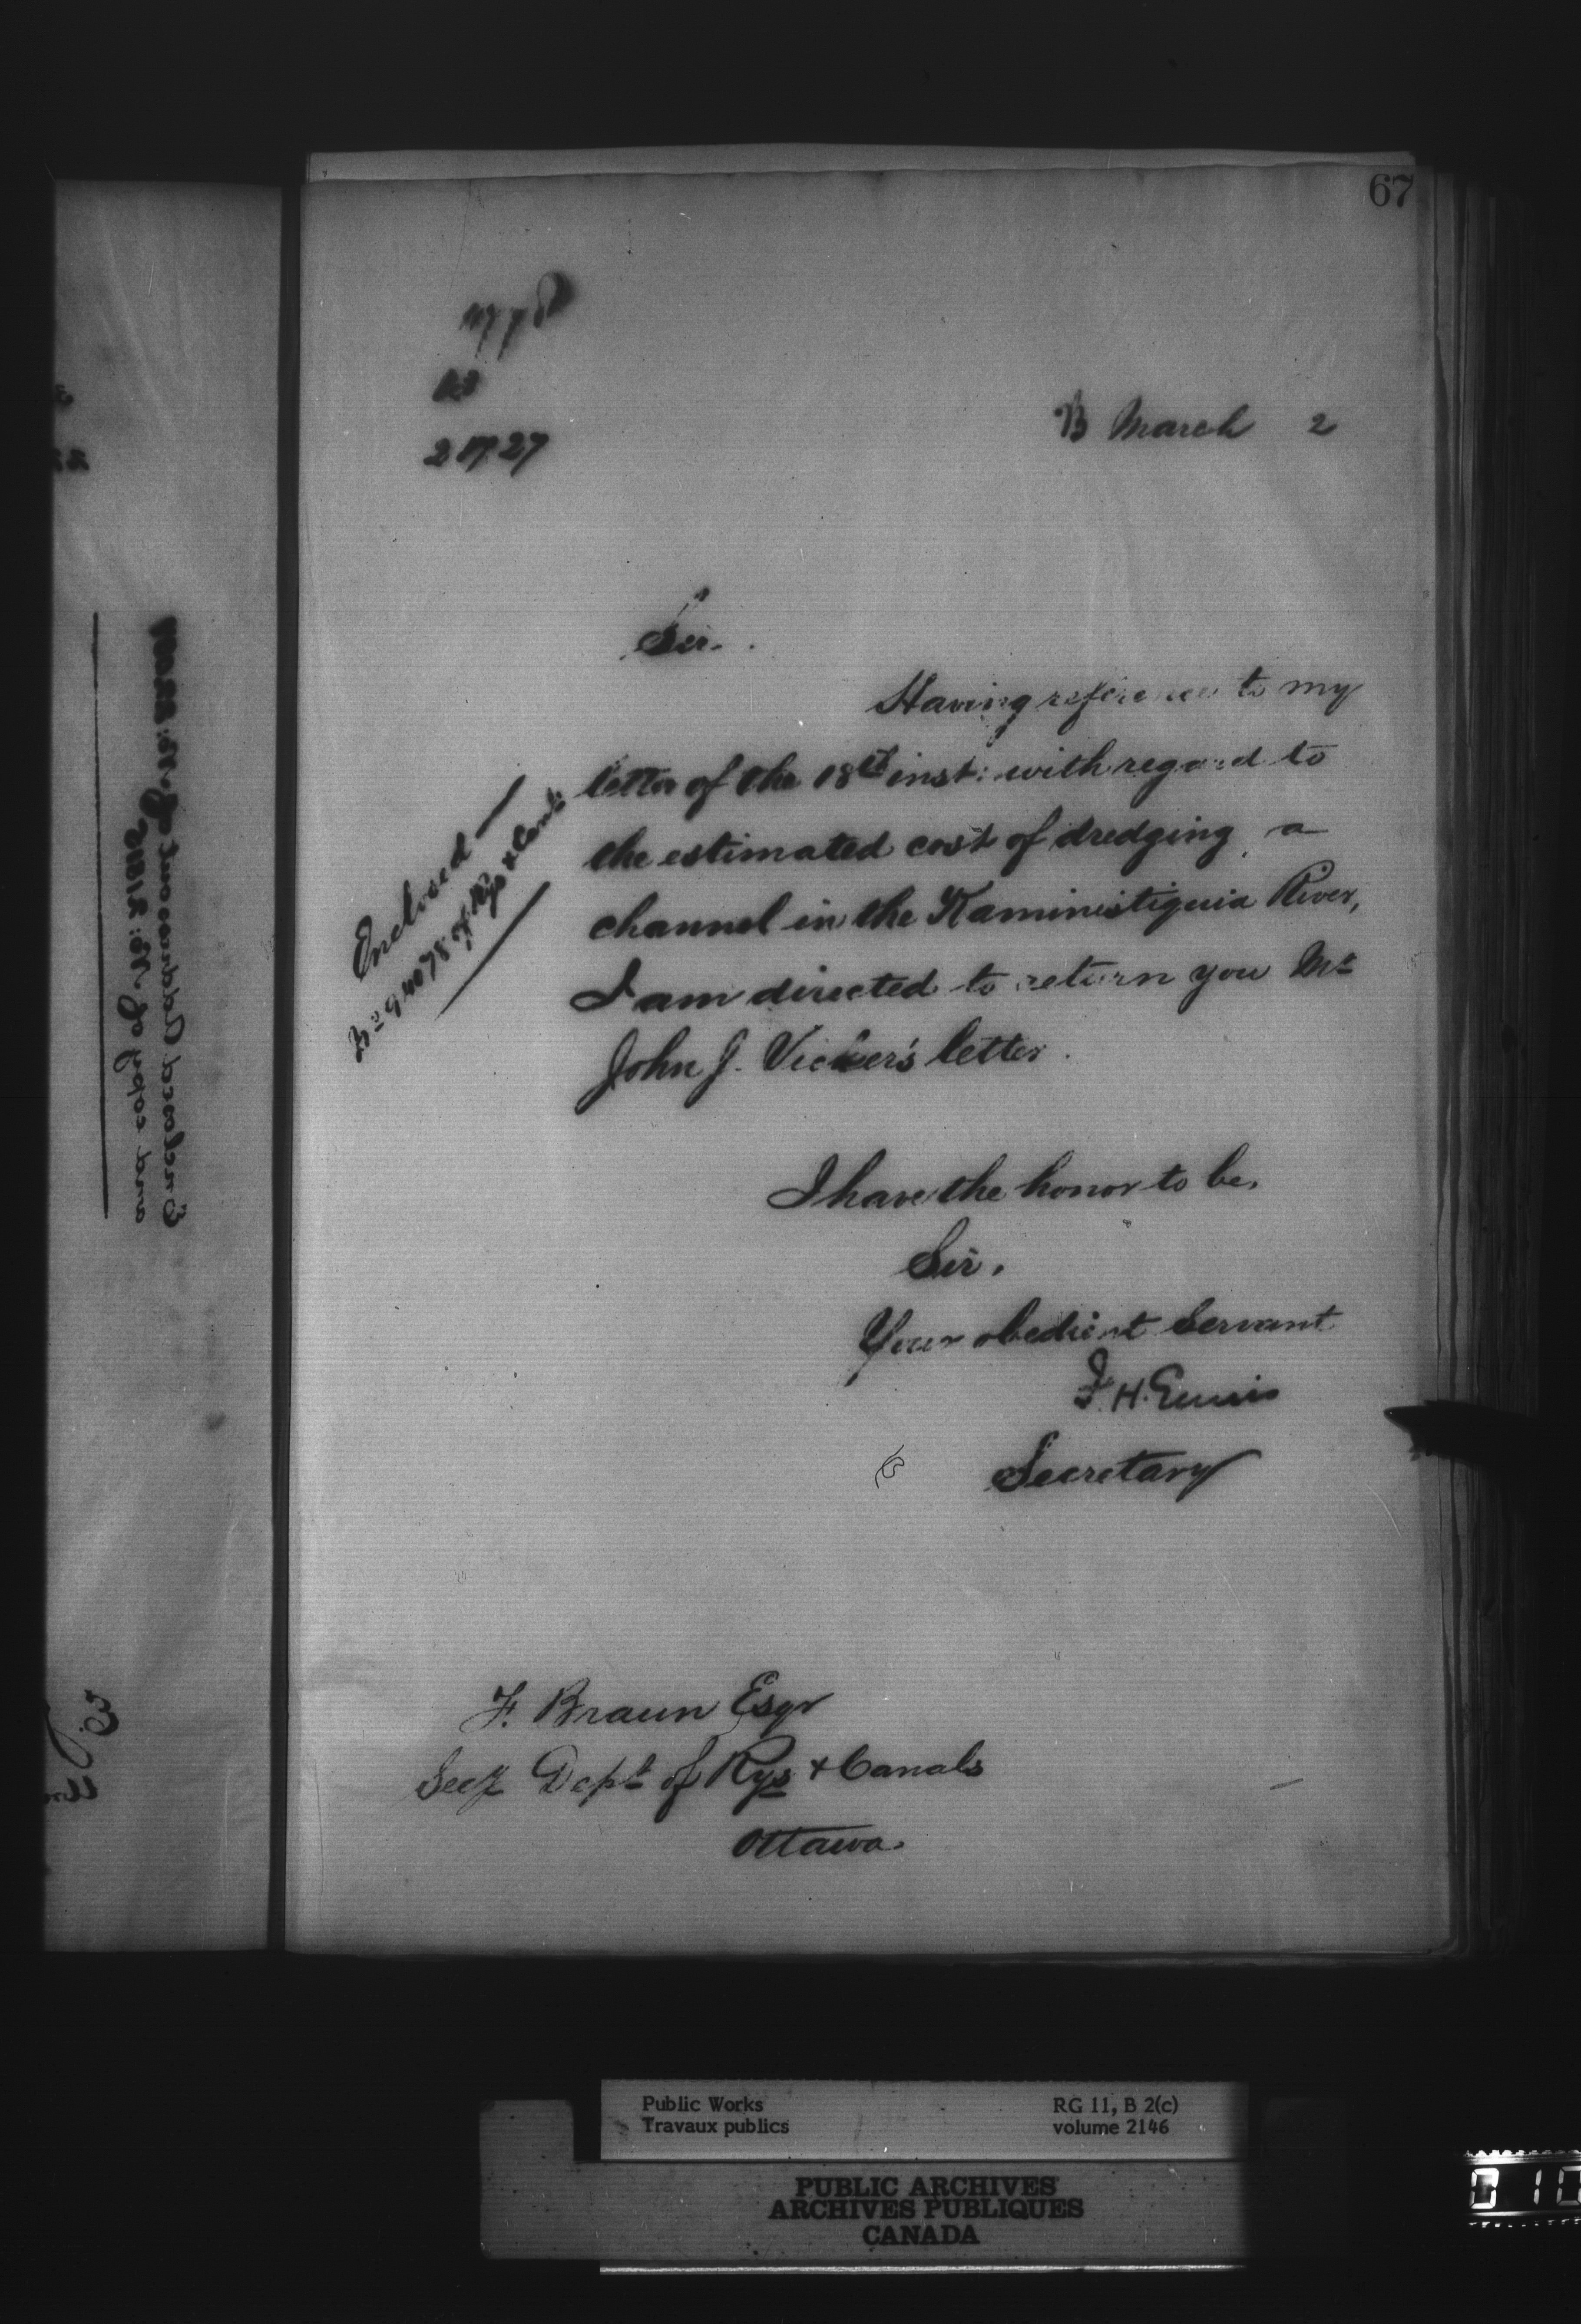 67
B March 2
Sir.
Having reference to my
letter of the 18th inst: with regard to
the estimated cost of dredging a
channel in the Kaministiquia River,
I am directed to return you Mr
John J. Vicker's letter.
Enclosed
No 94078 of Rys & Canls
I have the honor to be,
Sir,
Your obedient Servant
F. H. Ennis
Secretary
F. Braun Esqr
Secy Dept of Rys & Canals
Ottawa.
Enclosed
and copy of No: 21815
Public Works
Travaux publics
RG 11, B 2(c)
volume 2146
PUBLIC ARCHIVES
ARCHIVES PUBLIQUES
CANADA
010